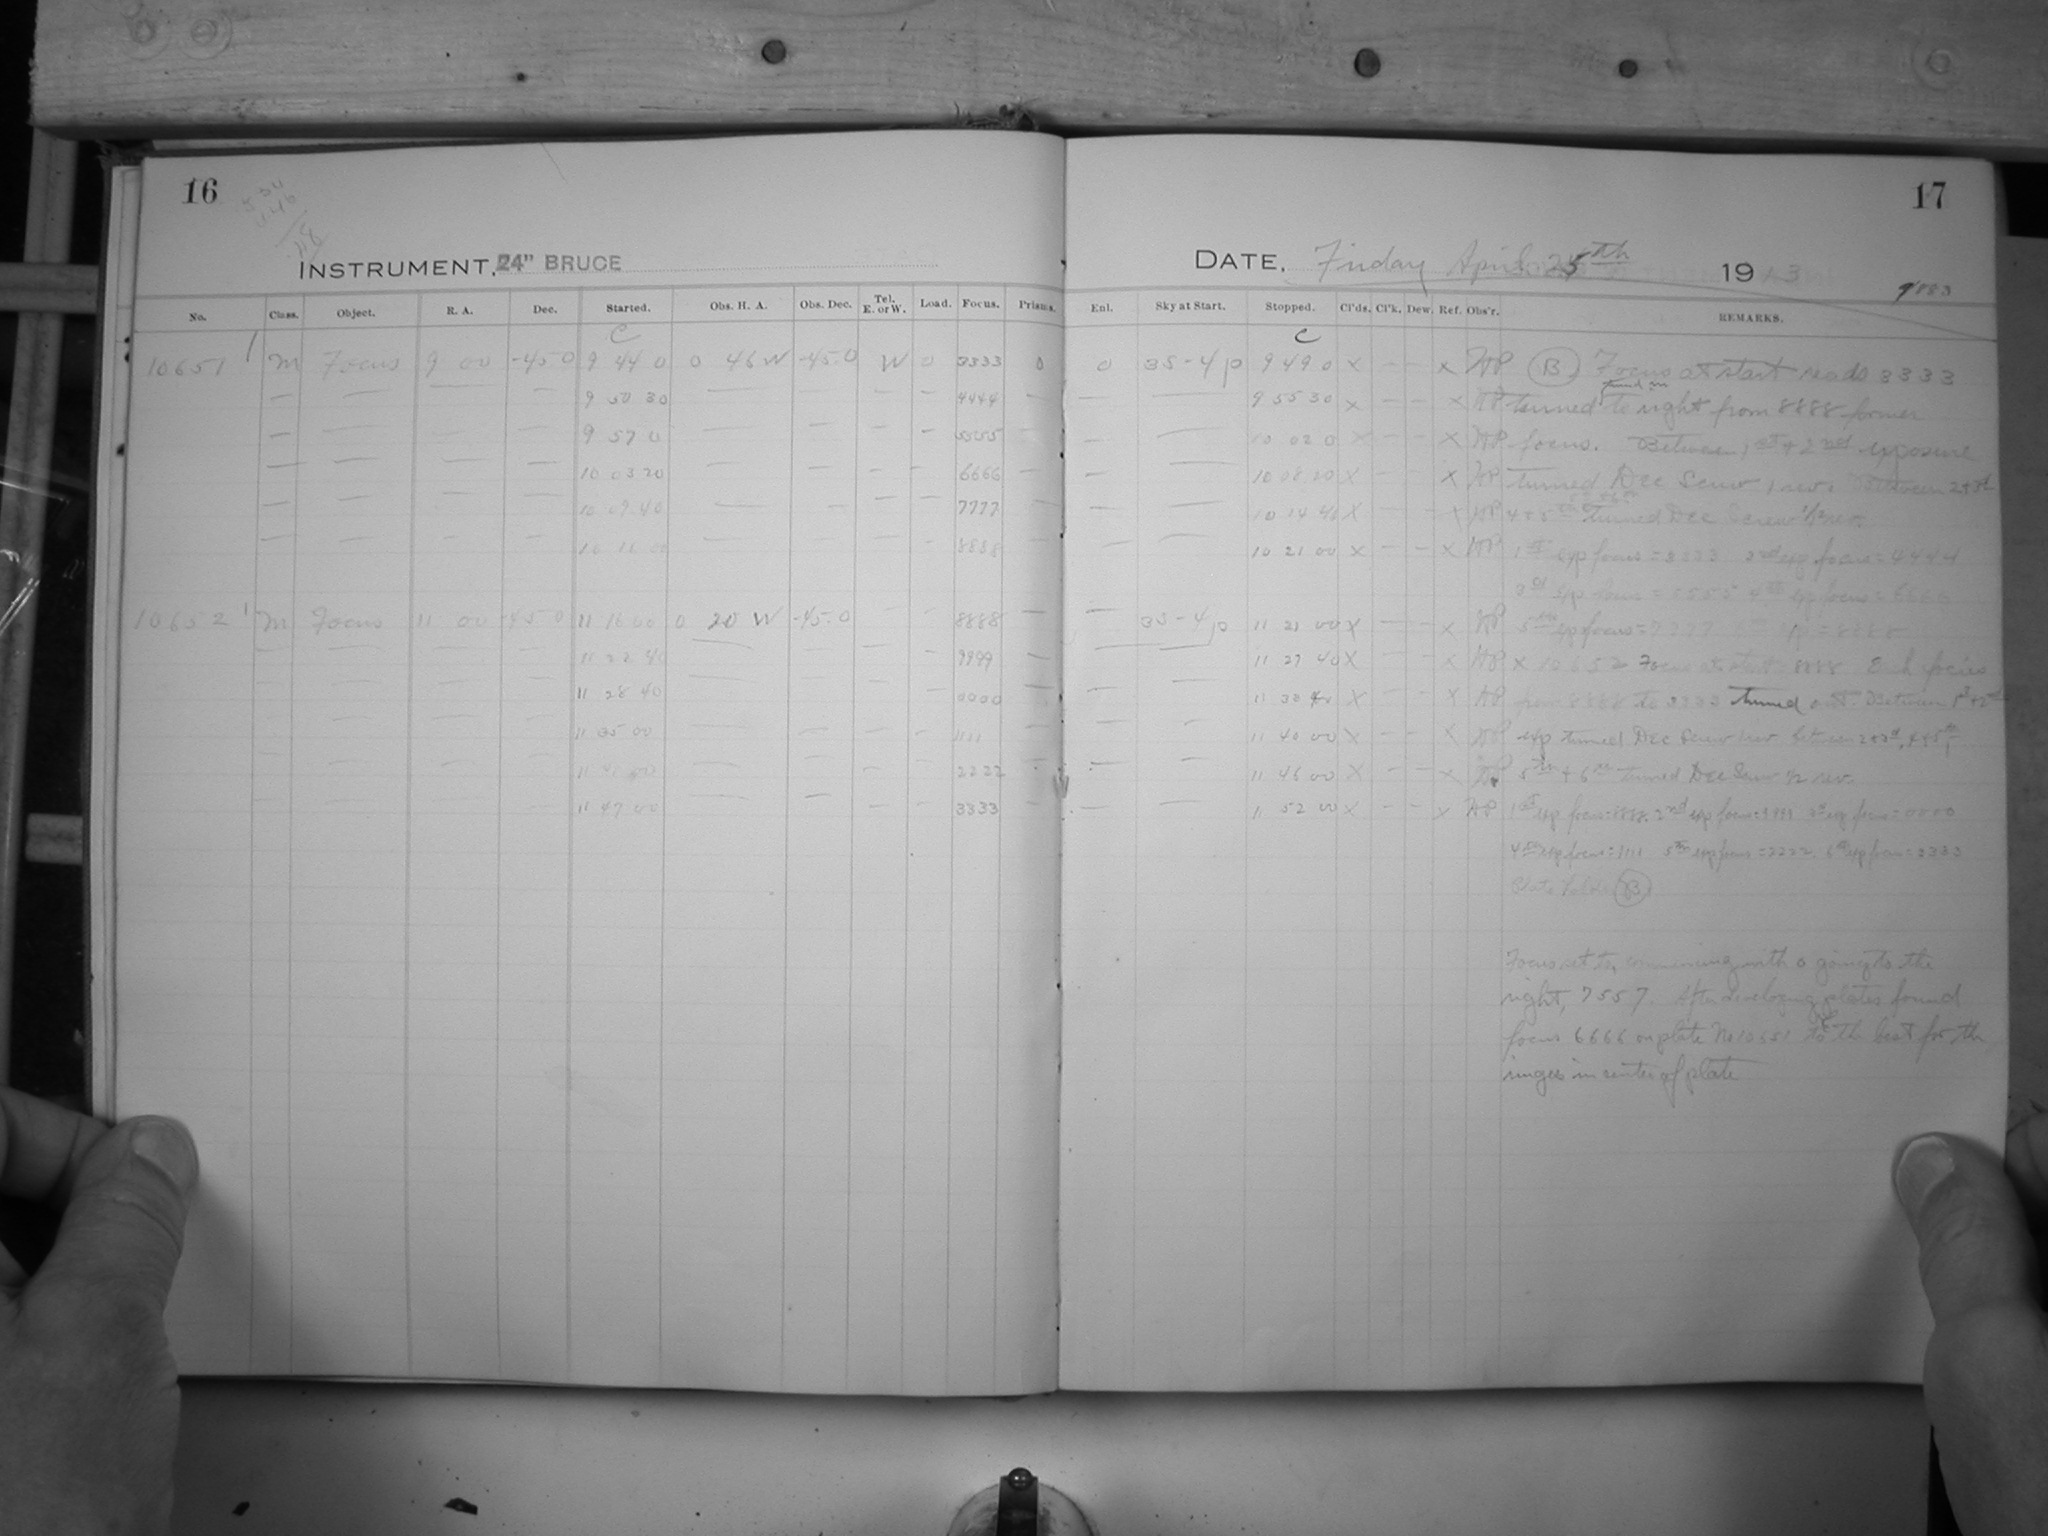 16
INSTRUMENT, 24" BRUCE
No. Class. Object. R. A. Dec. Started. Obs. H. A. Obs. Dec. Tel. E. or W. Load. Focus. Prisms.
C
10651 1 M Focus 9 00 -45.0 9 44 0 0 46 W -45.0 W 0 3333 0
— — — — 9 50 30 — — — 4444 —
— — — — 9 57 0 — — — — 5555 —
— — — — 10 03 20 — — — — 6666 —
— — — — 10 09 40 — — — — 7777 —
— — — — 10 16 00 — — — — 8888 —
10652 1 M Focus 11 00 -45.0 11 16 00 0 20 W -45.0 — — 8888 —
— — — — 11 22 40 — — — — 9999 —
— — — — 11 28 40 — — — — 0000 —
— — — — 11 35 00 — — — — 1111 —
— — — — 11 41 00 — — — — 2222 —
— — — — 11 47 00 — — — — 3333 —
17
DATE, Friday April 25th 1913
Enl. Sky at Start. Stopped. Cl'ds. Cl'k. Dew. Ref. Obs'r. REMARKS.
C
0 3S-4p 9 49 0 x — — x HP (B) Focus at start reads 3333
— — 9 55 30 x — — x HP turned to right from 8888 former
— — 10 02 0 x — — x HP focus. Between 1st + 2nd exposure
— — 10 08 20 x x HP turned Dec Screw 1 rev. Between 2+3d
— — 10 14 40 x — — x HP 4+5th turned Dec Screw 1/2 rev.
— — 10 21 00 x — — x HP 1st exp focus = 3333 2nd exp focus = 4444
3d exp focus = 5555 4th exp focus = 6666
— 3S-4p 11 21 00 x x HP 5th exp focus = 7777 6th exp = 8888
— — 11 27 40 x — — x HP x 10652 Focus at start 8888 Each focus
— — 11 33 40 x — — x HP from 8888 to 3333 turned out. Between 1st+2nd
— — 11 40 00 x — — x HP exp turned Dec Screw 1 rev between 2+3d, 4+5th
— — 11 46 00 x — — x HP 5th + 6th turned Dec Screw 1/2 rev.
— — 11 52 00 x — — x HP 1st exp focus = 8888. 2nd exp focus = 9999 3d exp focus = 0000
4th exp focus = 1111 5th exp focus = 2222. 6th exp focus = 3333
Plate holder (B)
Focus set to, commencing with 0 going to the
right, 7557. After developing plates found
focus 6666 on plate No 10651 to be the best for the
images in center of plate